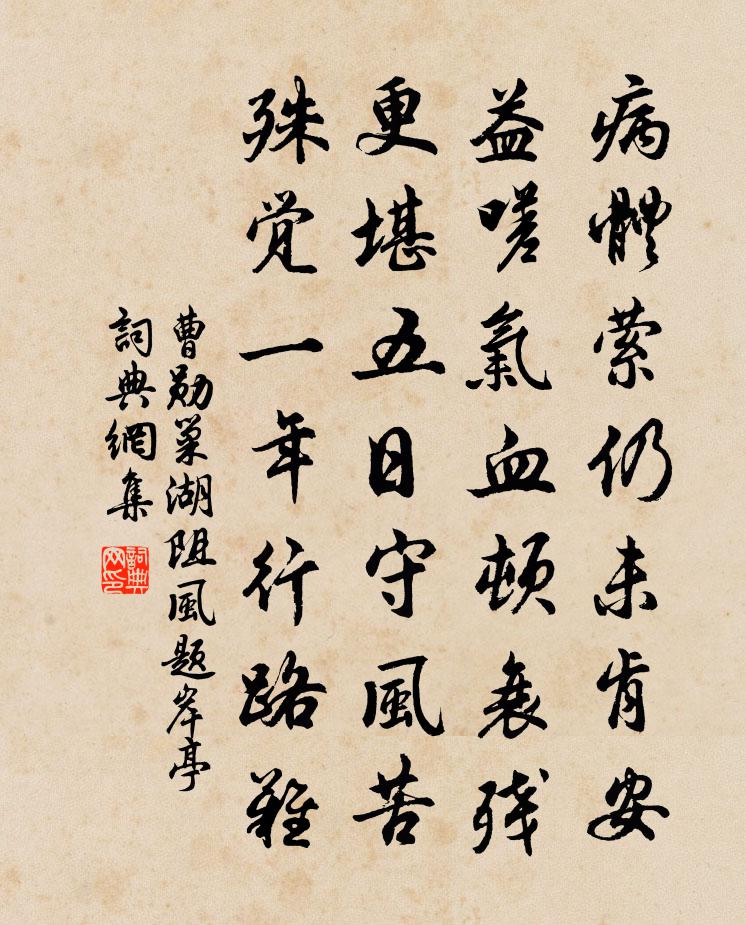 病體縈仍未肯安
益嗟氣血頓衰残
更堪五日守風苦
殊覚一年行路難
曹勛巢湖阻風题岸亭
詞典網集
詞典
网印